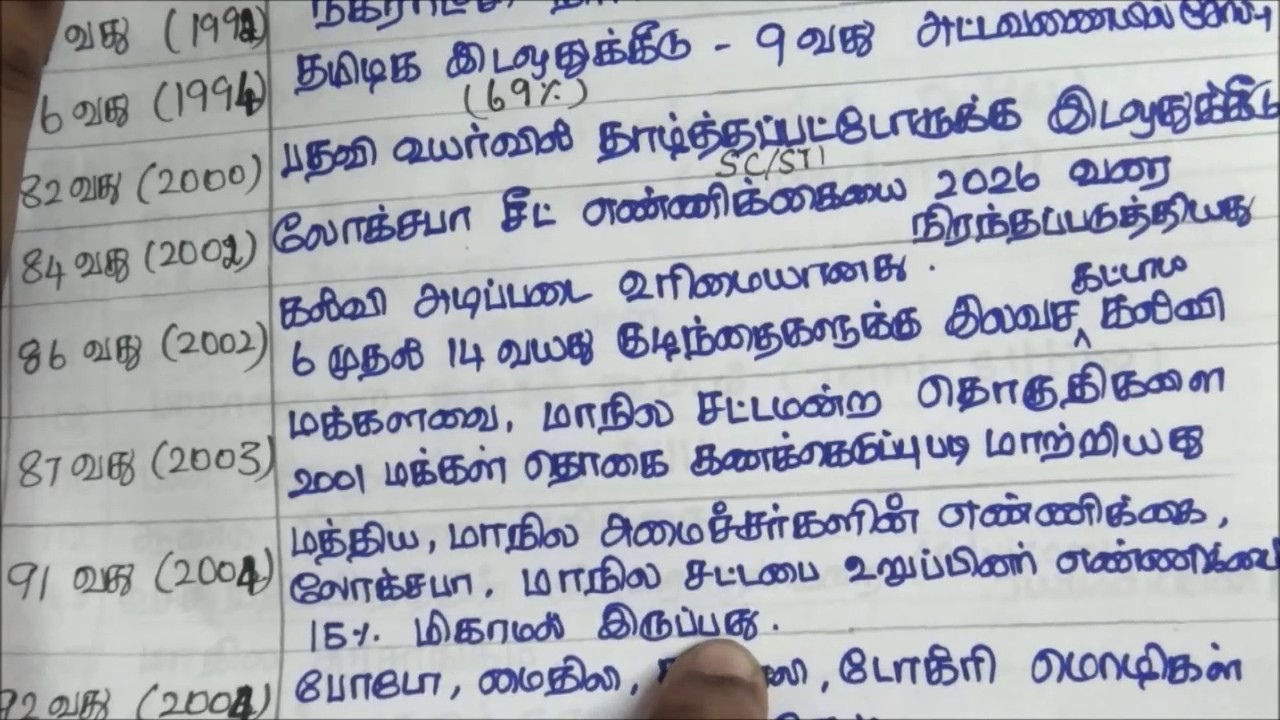 வது (1992)
6 வது (1994) தமிழக இடஒதுக்கீடு - 9 வது அட்டவணையில்
(69%)
82 வது (2000) பதவி உயர்வில் தாழ்த்தப்பட்டோருக்கு இடஒதுக்கீடு
SC/ST
84 வது (2002) லோக்சபா சீட் எண்ணிக்கையை 2026 வரை
நிரந்தப்படுத்தியது
86 வது (2002) கல்வி அடிப்படை உரிமையானது.
கட்டாய
6 முதல் 14 வயது குழந்தைகளுக்கு இலவச ^ கல்வி
87 வது (2003) மக்களவை, மாநில சட்டமன்ற தொகுதிகளை
2001 மக்கள் தொகை கணக்கெடுப்புபடி மாற்றியது
91 வது (2004) மத்திய, மாநில அமைச்சர்களின் எண்ணிக்கை,
லோக்சபா, மாநில சட்டபை உறுப்பினர் எண்ணிக்கை
15% மிகாமல் இருப்பது.
92 வது (2004) போடோ, மைதிலி, டோகிரி மொழிகள்